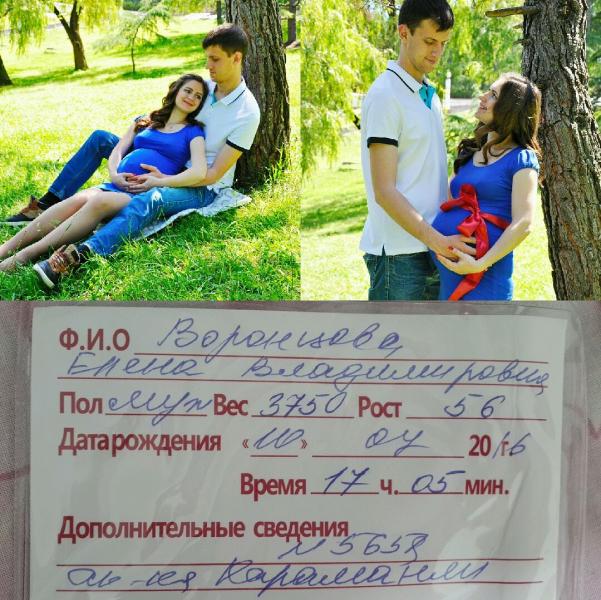 Ф.И.О Воронцова
Елена Владимировна
Пол Муж Вес 3750 Рост 56
Дата рождения «10» 04 2016
Время 17 ч. 05 мин.
Дополнительные сведения
Караманли